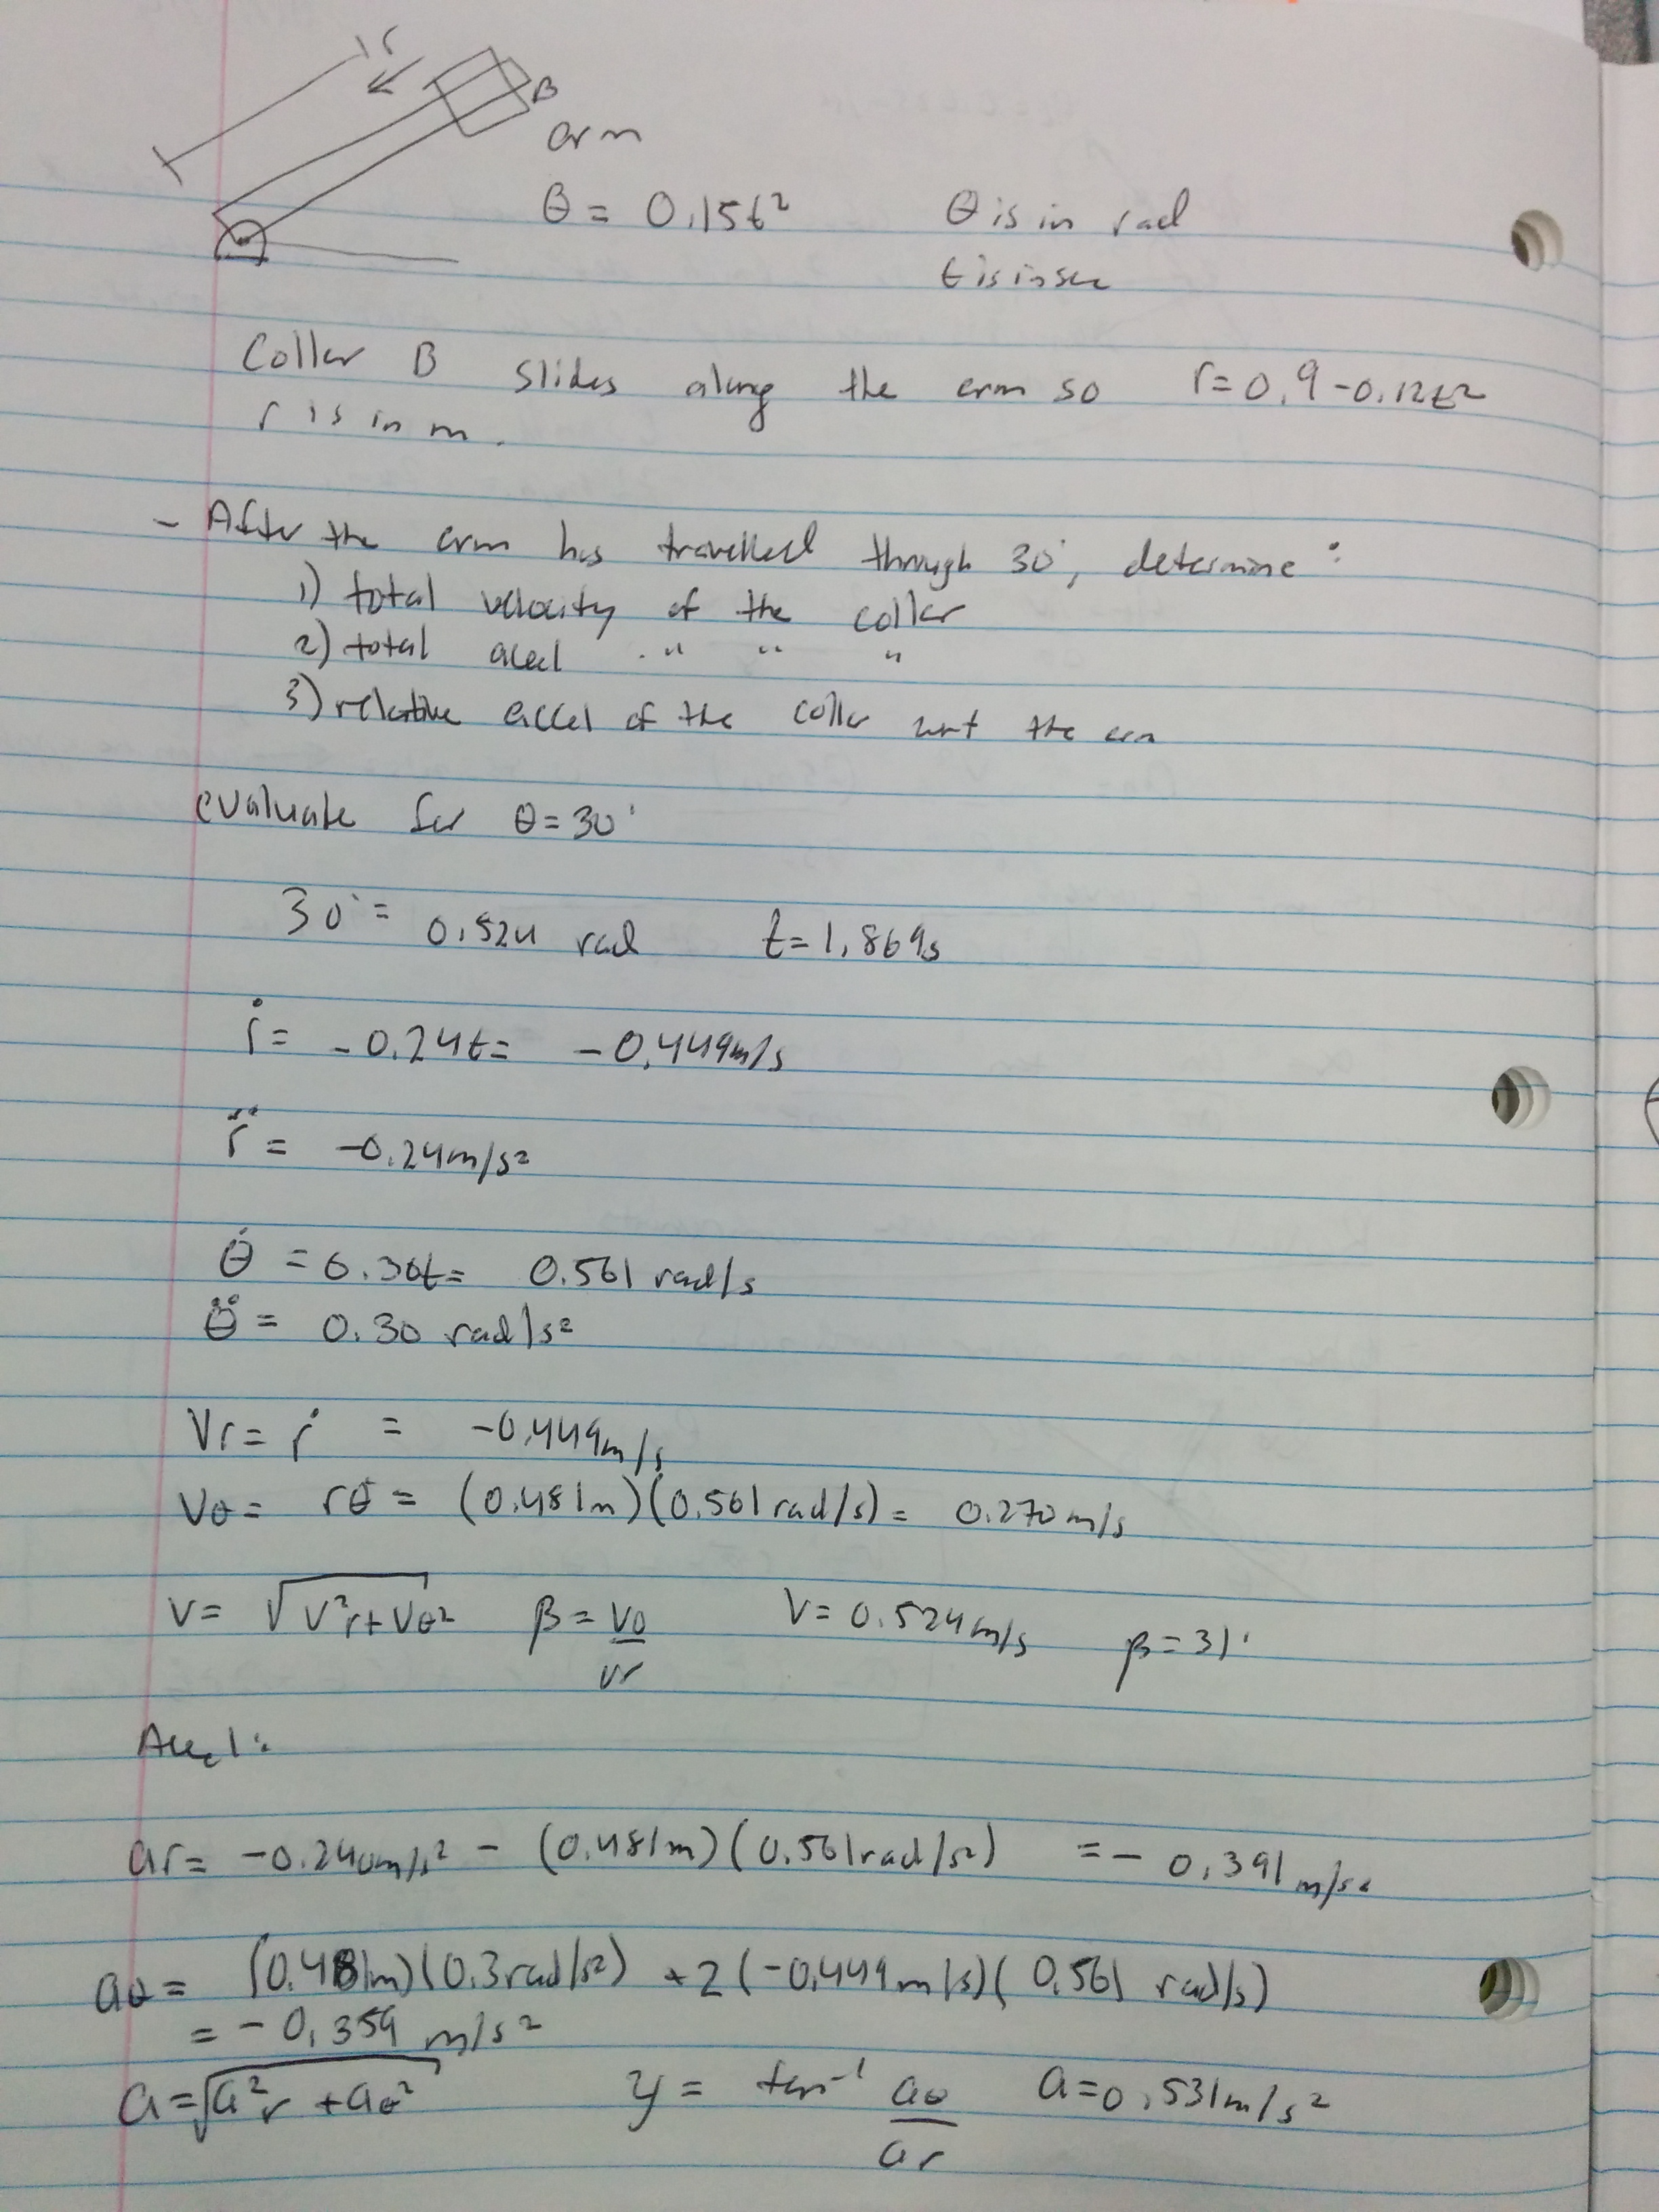 r
B
arm
θ = 0.15t² θ is in rad
t is in sec
Collar B slides along the arm so r = 0.9 - 0.12t²
r is in m.
- After the arm has travelled through 30°, determine:
1) total velocity of the collar
2) total accel " " "
3) relative accel of the collar wrt the arm
evaluate for θ = 30°
30° = 0.524 rad t = 1.869s
ṙ = -0.24t = -0.449m/s
r̈ = -0.24m/s²
θ̇ = 0.30t = 0.561 rad/s
θ̈ = 0.30 rad/s²
Vr = ṙ = -0.449m/s
Vθ = rθ̇ = (0.481m)(0.561rad/s) = 0.270m/s
V = √V²r + Vθ² β = Vθ/Vr V = 0.524m/s β = 31°
Accel:
ar = -0.240m/s² - (0.481m)(0.561rad/s²) = -0.391m/s²
aθ = (0.481m)(0.3rad/s²) + 2(-0.449m/s)(0.561 rad/s)
= -0.359 m/s²
a = √a²r + aθ² y = tan⁻¹ aθ/ar a = 0.531m/s²